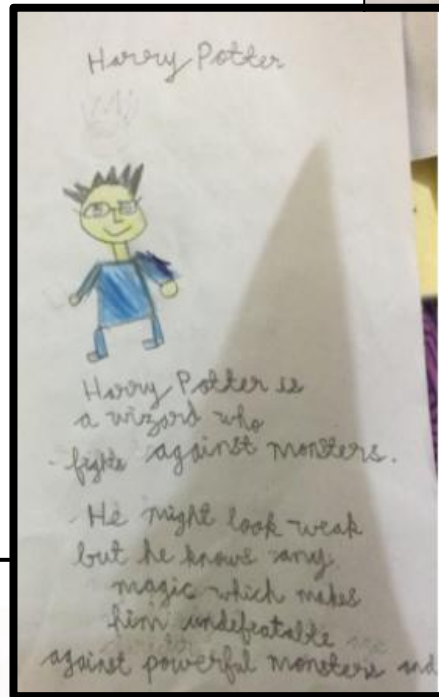 Harry Potter
Harry Potter is
a wizard who
fights against monsters.
He might look weak
but he knows any
magic which makes
him undefeatable
against powerful monsters and